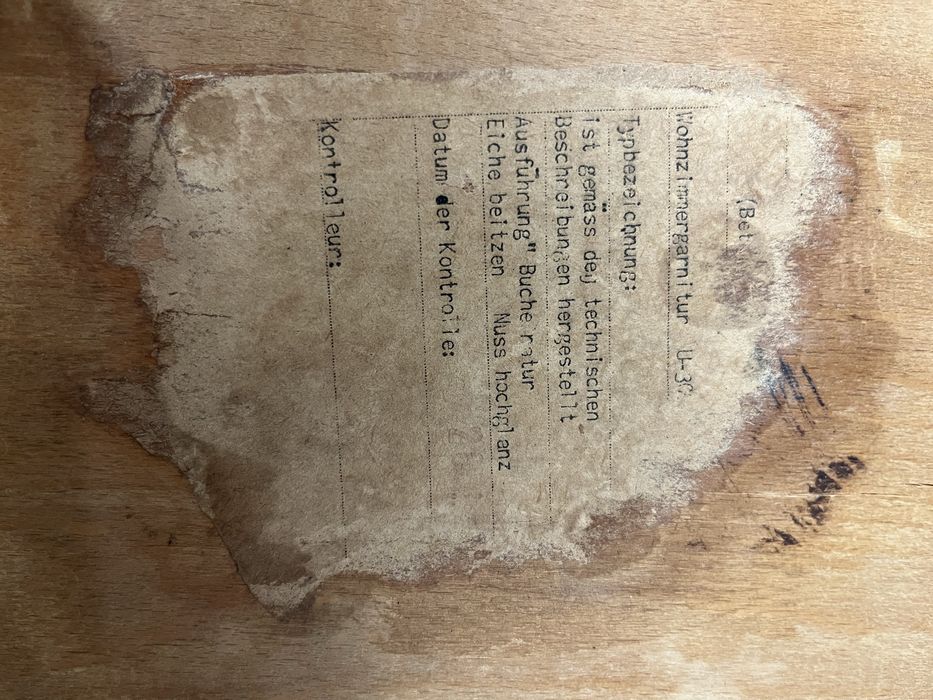 (Bet
Wohnzimmergarnitur U-3
Typbezeichnung:
ist gemäss dej technischen
Beschreibungen hergestellt
Ausführung" Buche natur
Eiche beitzen Nuss hochglanz
Datum der Kontrolle:
Kontrolleur: